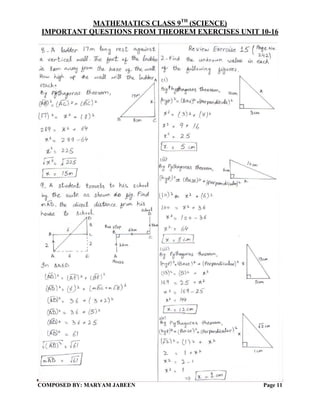 MATHEMATICS CLASS 9TH (SCIENCE)
IMPORTANT QUESTIONS FROM THEOREM EXERCISES UNIT 10-16
8. A ladder 17m long rest against
a vertical wall. The foot of the ladder
is 8cm away from the base of the wall.
How high up the wall will the ladder
reach:
By Pythagoras theorem
(AB)² = (AC)² + (BC)²
(17)² = x² + (8)²
289 = x² + 64
x² = 289-64
x² = 225
√x² = √225
x = 15m
9. A student travels to his school
by the route as shown in fig. Find
mAD, the direct distance from his
house to school.
In
(AD)² = (AE)² + (DE)²
(AD)² = 36 + (3+2)²
(AD)² = 36 + (5)²
(AD)² = 36 + 25
(AD)² = 61
√(AD)² = √61
mAD = √61
Review Exercise 15 (Page No 242)
2. Find the unknown value in each
of the following figures.
(i)
By Pythagoras theorem
(hyp)² = (Base)² + (Perpendicular)²
x² = (3)² + (4)²
x² = 9 + 16
x² = 25
x = 5 cm
(ii)
By Pythagoras theorem
(hyp)² = (Base)² + (Perpendicular)²
(10)² = x² + (6)²
100 = x² + 36
x² = 100-36
x² = 64
x = 8 cm
(iii)
By Pythagoras theorem
(hyp)² = (Base)² + (Perpendicular)²
(13)² = (5)² + x²
169 = 25 + x²
x² = 169-25
x² = 144
x = 12 cm
(iv)
By Pythagoras theorem
(hyp)² = (Base)² + (Perpendicular)²
(√2)² = (1)² + x²
2 = 1 + x²
x² = 2-1
x² = 1
COMPOSED BY: MARYAM JABEEN Page 11